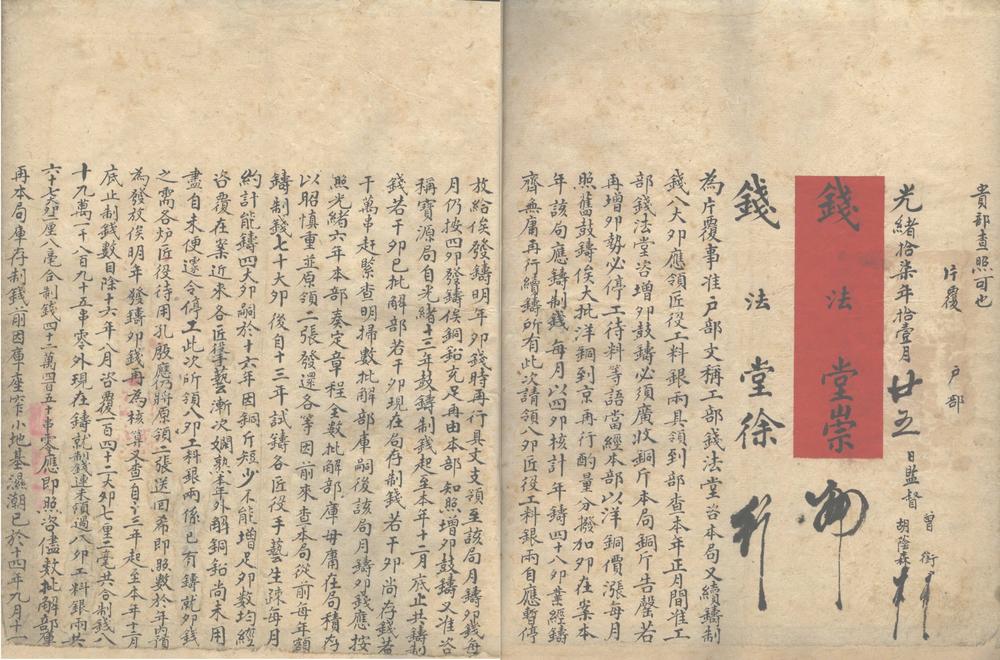 貴部查照可也
片覆 戶部
光緒拾柒年拾壹月廿五日監督 曾衍 胡蔭森
錢法堂崇
錢法堂徐 行
為片覆事准戶部文稱工部錢法堂咨本局又續鑄制
錢八大卯應領匠役工料銀兩具領到部查本年正月間准工
部錢法堂咨增卯鼓鑄必須廣收銅斤本局銅斤告罄若
再增卯勢必停工待料等語當經本部以洋銅價漲每月
照舊鼓鑄俟大批洋銅到京再行酌量分撥加卯在案本
年該局應鑄制錢每月以四卯核計年鑄四十八卯業經鑄
齊無庸再行續鑄所有此次請領八卯匠役工料銀兩自應暫停
放給俟發鑄明年卯錢時再行具文支領至該局月鑄卯錢每
月仍按四卯發鑄俟銅鉛充足再由本部知照增卯鼓鑄又准咨
稱寶源局自光緒十三年鼓鑄制錢起至本年十二月底止共鑄制
錢若干卯已批解部若干卯現在局存制錢若干卯尚存錢若
干萬串赶緊查明掃數批解部庫嗣後該局月鑄卯錢應按
照光緒六年本部奏定章程全數批解部庫毋庸在局積存
以昭慎重並原領二張發還各等因前來查本局從前每年額
鑄制錢七十大卯後自十三年試鑄各匠役手藝生踈每月
約計能鑄四大卯嗣於十六年因銅斤短少不能增足卯數均經
咨覆在案近來各匠藝漸次嫻熟本年外解銅鉛尚未用
盡自未便遽令停工此次所領八卯工料銀兩係已有鑄就卯錢
之需各炉匠役待用孔殷應仍將原領二張送回希即照數於年內預
為發放俟明年發鑄卯錢再為核算又查自十三年起至本年十二月
底止制錢數目除十六年八月咨覆一百四十二大卯七厘三毫共合制錢八
十九萬一千八百九十五串零外現在鑄就制錢連未領過八卯工料銀兩共
六十七大卯一厘八毫合制錢四十二萬四百五十串零應即照咨儘數批解部庫
再本局庫存制錢前因庫座窄小地基濕潮已於十四年九月十一